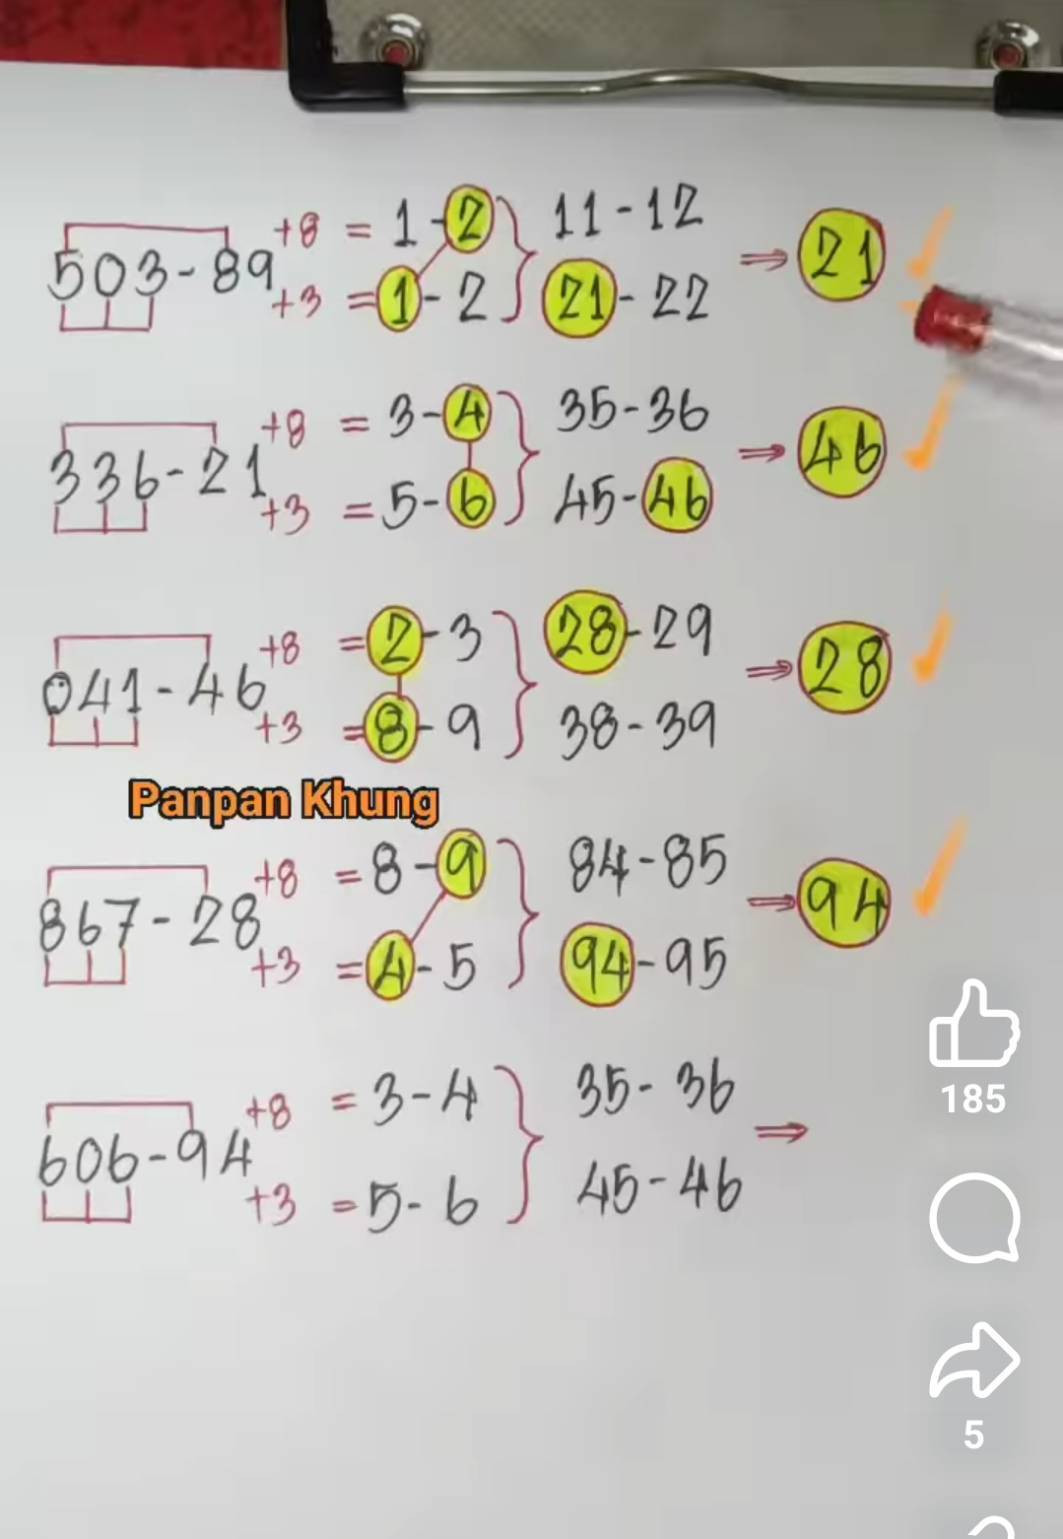 +8 = 1-2 11-12
503-89 ⇒ 21
+3 = 1-2 21-22
+8 = 3-4 35-36
336-21 ⇒ 46
+3 = 5-6 45-46
+8 = 2-3 28-29
041-46 ⇒ 28
+3 = 8-9 38-39
Panpan Khung
+8 = 8-9 84-85
867-28 ⇒ 94
+3 = 4-5 94-95
+8 = 3-4 35-36
606-94 ⇒
+3 = 5-6 45-46
185
5